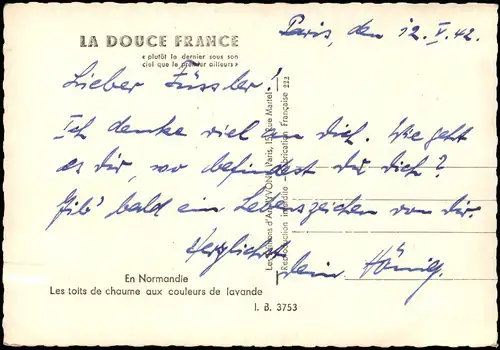 Paris, den 12. V. 42.
LA DOUCE FRANCE
« plutôt le dernier sous son
ciel que le premier ailleurs »
Lieber Füssler!
Ich denke viel an dich. Wie geht
es dir, wo befindest du dich?
Gib' bald ein Lebenszeichen von dir.
Herzlichst
dein König.
En Normandie
Les toits de chaume aux couleurs de lavande
I. B. 3753
Les Éditions d'Art YVON, Paris, 15, Rue Martel
Reproduction interdite - Fabrication Française